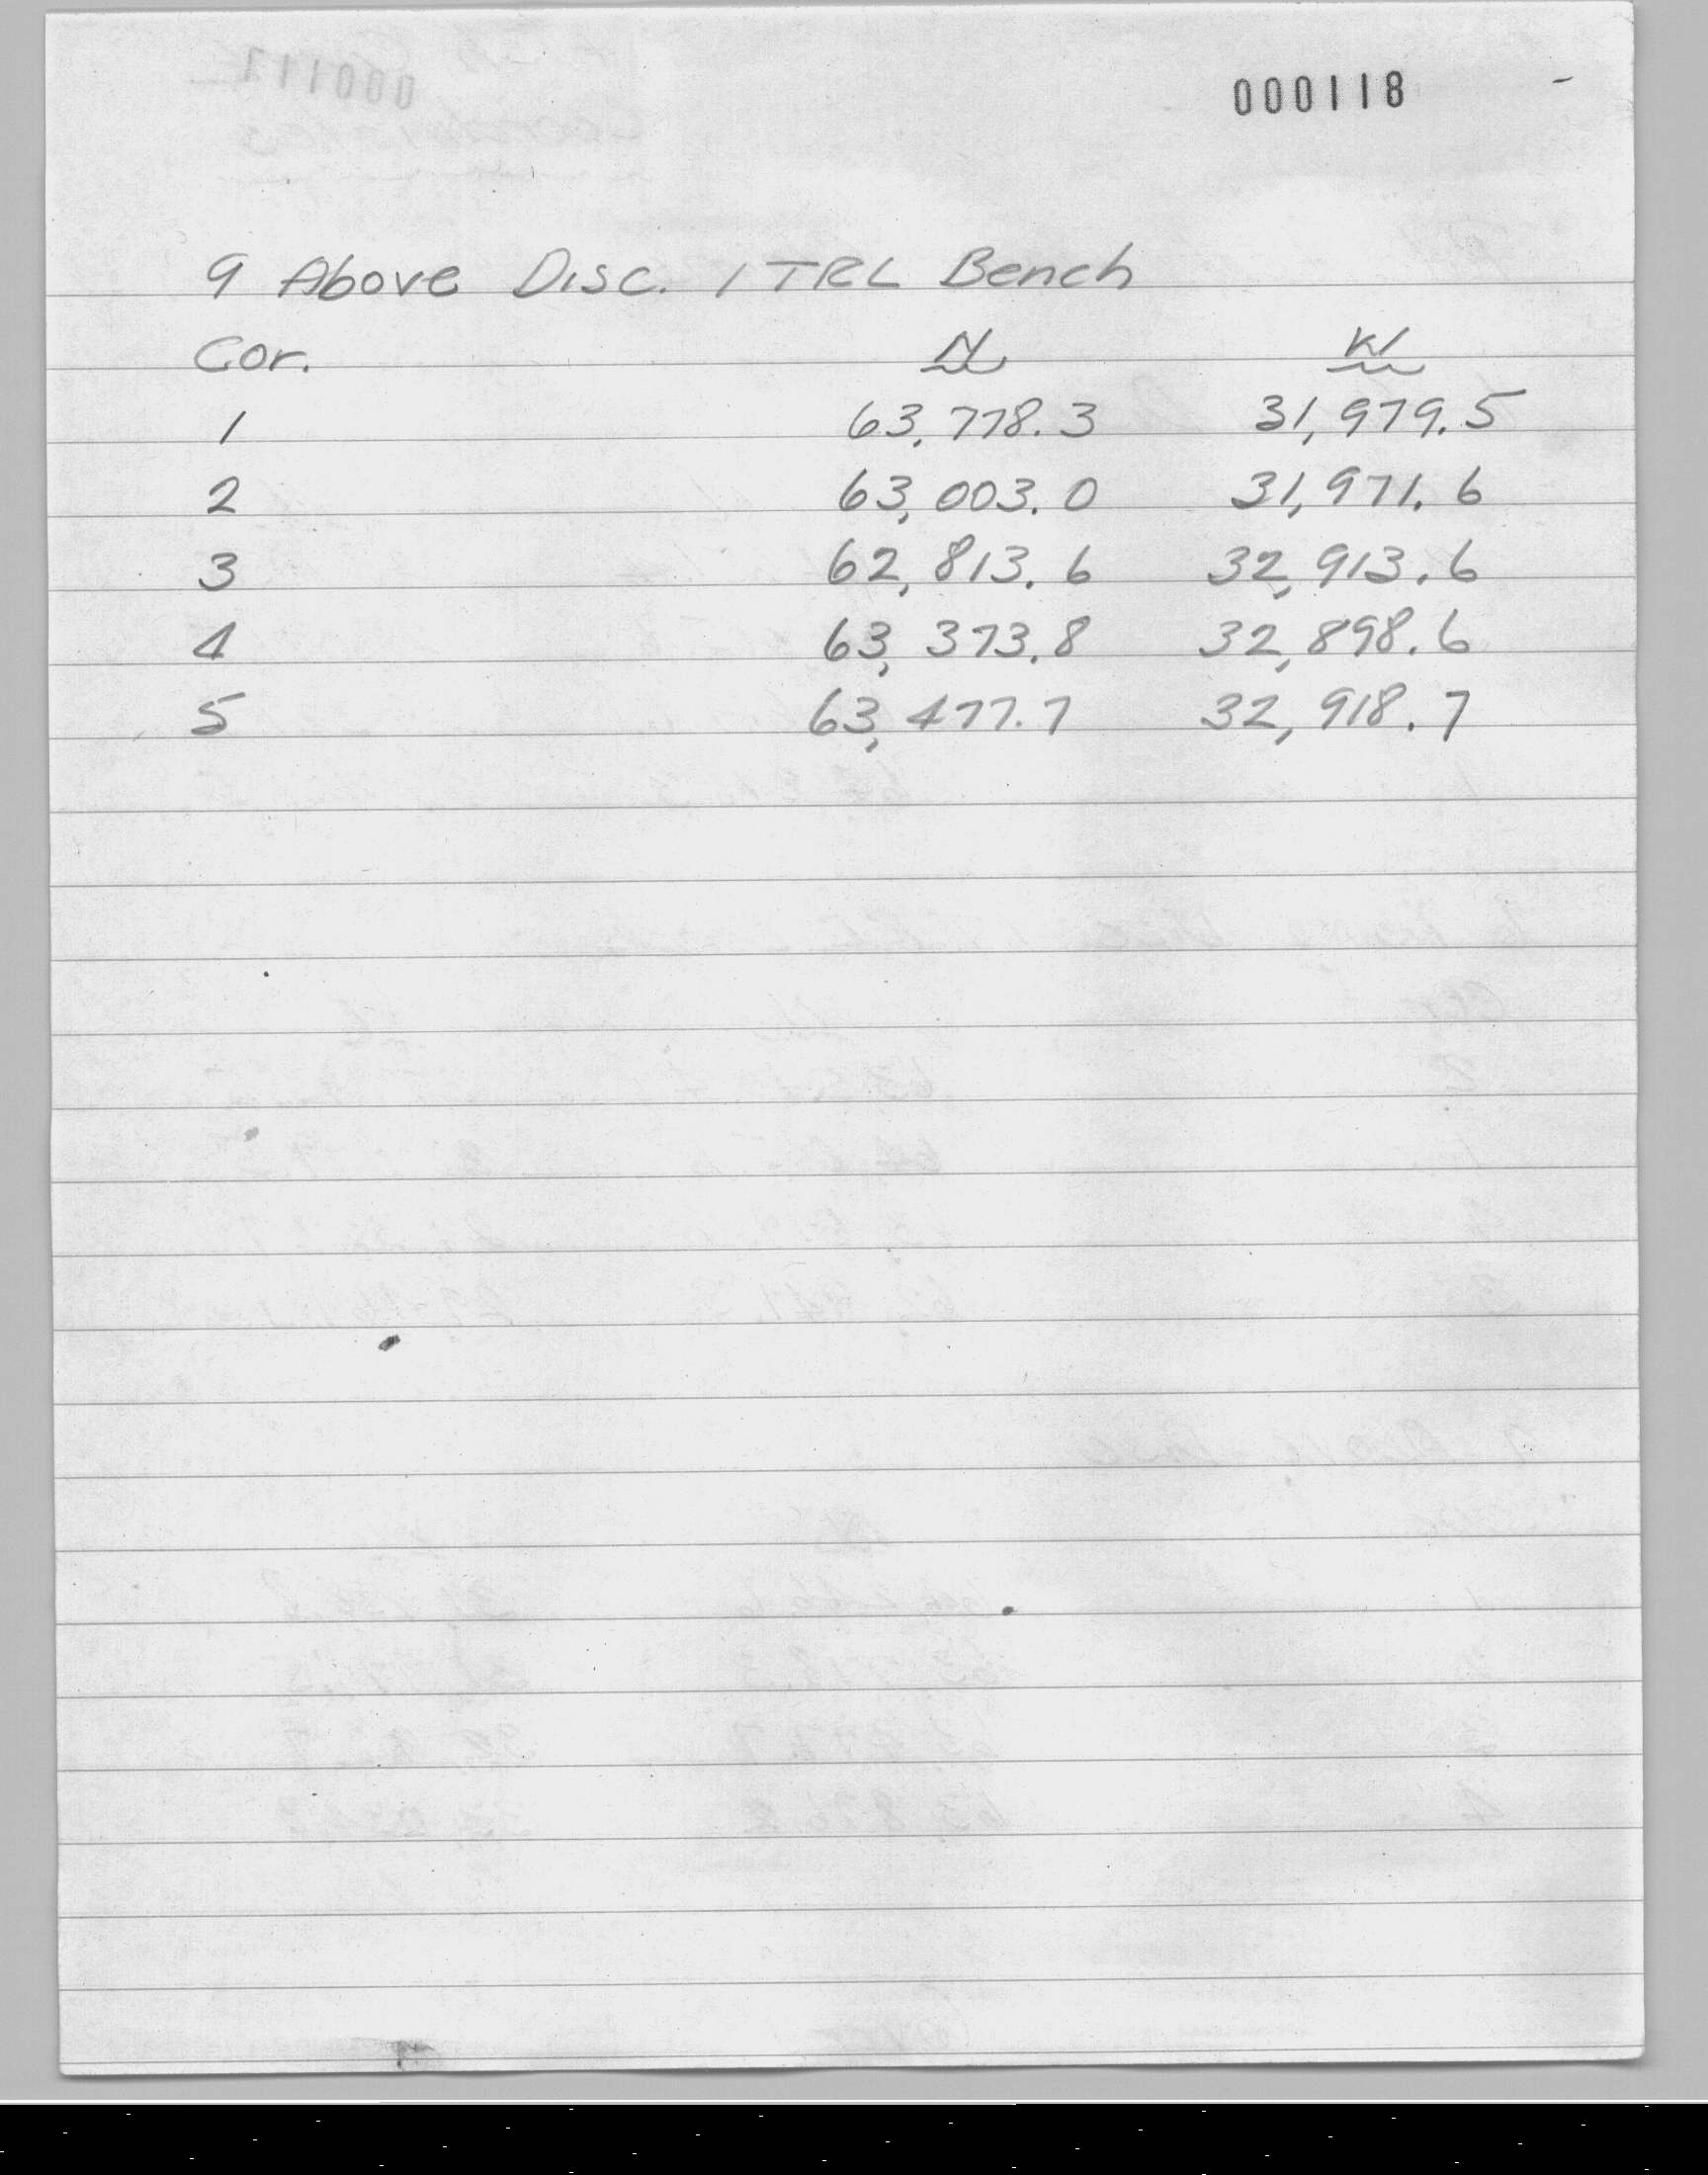 000118
9 Above Disc. 1 TRL Bench
Cor. N W
1 63,778.3 31,979.5
2 63,003.0 31,971.6
3 62,813.6 32,913.6
4 63,373.8 32,898.6
5 63,477.7 32,918.7